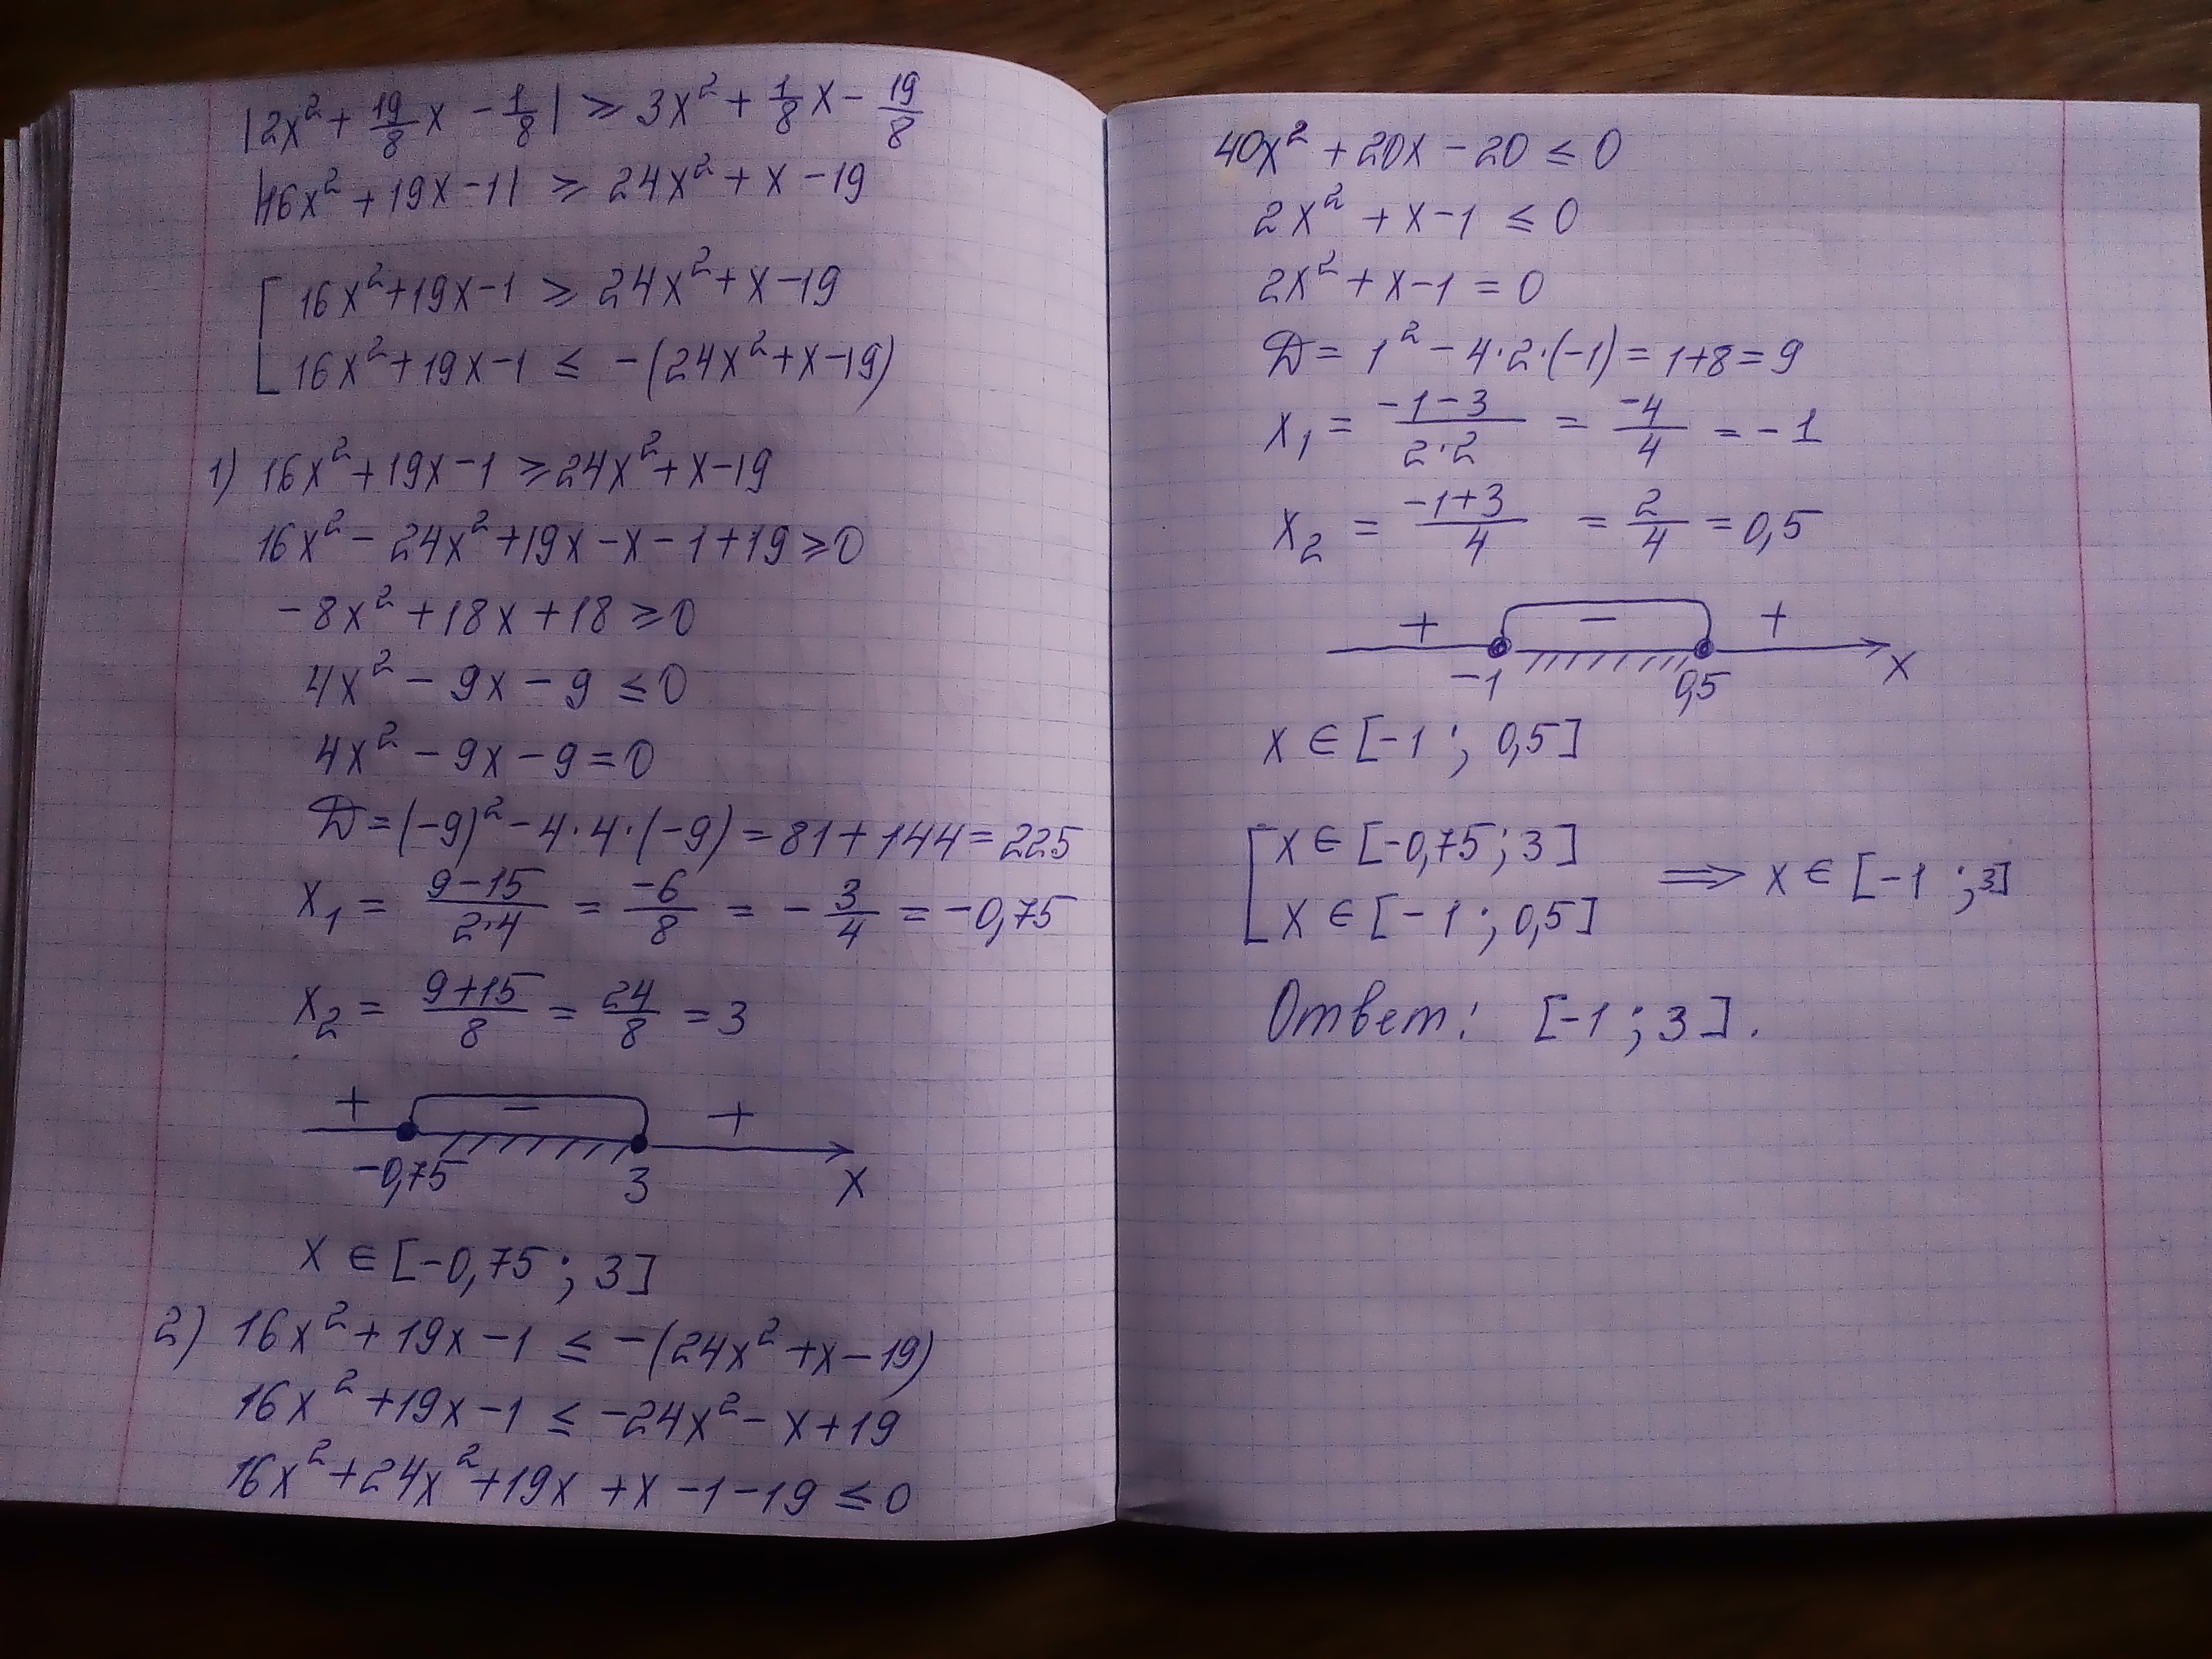 |2x² + 19/8 x - 1/8| ≥ 3x² + 1/8 x - 19/8
|16x² + 19x - 1| ≥ 24x² + x - 19
[ 16x² + 19x - 1 ≥ 24x² + x - 19
[ 16x² + 19x - 1 ≤ -(24x² + x - 19)
1) 16x² + 19x - 1 ≥ 24x² + x - 19
16x² - 24x² + 19x - x - 1 + 19 ≥ 0
-8x² + 18x + 18 ≥ 0
4x² - 9x - 9 ≤ 0
4x² - 9x - 9 = 0
D = (-9)² - 4·4·(-9) = 81 + 144 = 225
x₁ = (9-15)/(2·4) = -6/8 = -3/4 = -0,75
x₂ = (9+15)/8 = 24/8 = 3
+ - +
-0,75 3 x
x ∈ [-0,75; 3]
2) 16x² + 19x - 1 ≤ -(24x² + x - 19)
16x² + 19x - 1 ≤ -24x² - x + 19
16x² + 24x² + 19x + x - 1 - 19 ≤ 0
40x² + 20x - 20 ≤ 0
2x² + x - 1 ≤ 0
2x² + x - 1 = 0
D = 1² - 4·2·(-1) = 1 + 8 = 9
x₁ = (-1-3)/(2·2) = -4/4 = -1
x₂ = (-1+3)/4 = 2/4 = 0,5
+ - +
-1 0,5 x
x ∈ [-1; 0,5]
[ x ∈ [-0,75; 3]
[ x ∈ [-1; 0,5] ⟹ x ∈ [-1; 3]
Ответ: [-1; 3].